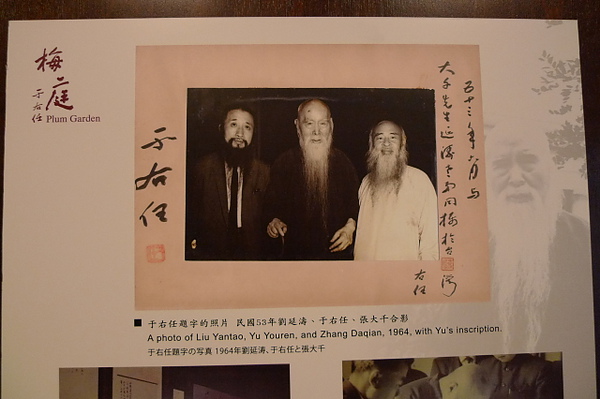 梅庭
于右任
Plum Garden
五十三年六月与
大千先生延濤
右任
于右任
■ 于右任題字的照片 民國53年劉延濤、于右任、張大千合影
A photo of Liu Yantao, Yu Youren, and Zhang Daqian, 1964, with Yu's inscription.
于右任題字の写真 1964年劉延涛、于右任と張大千